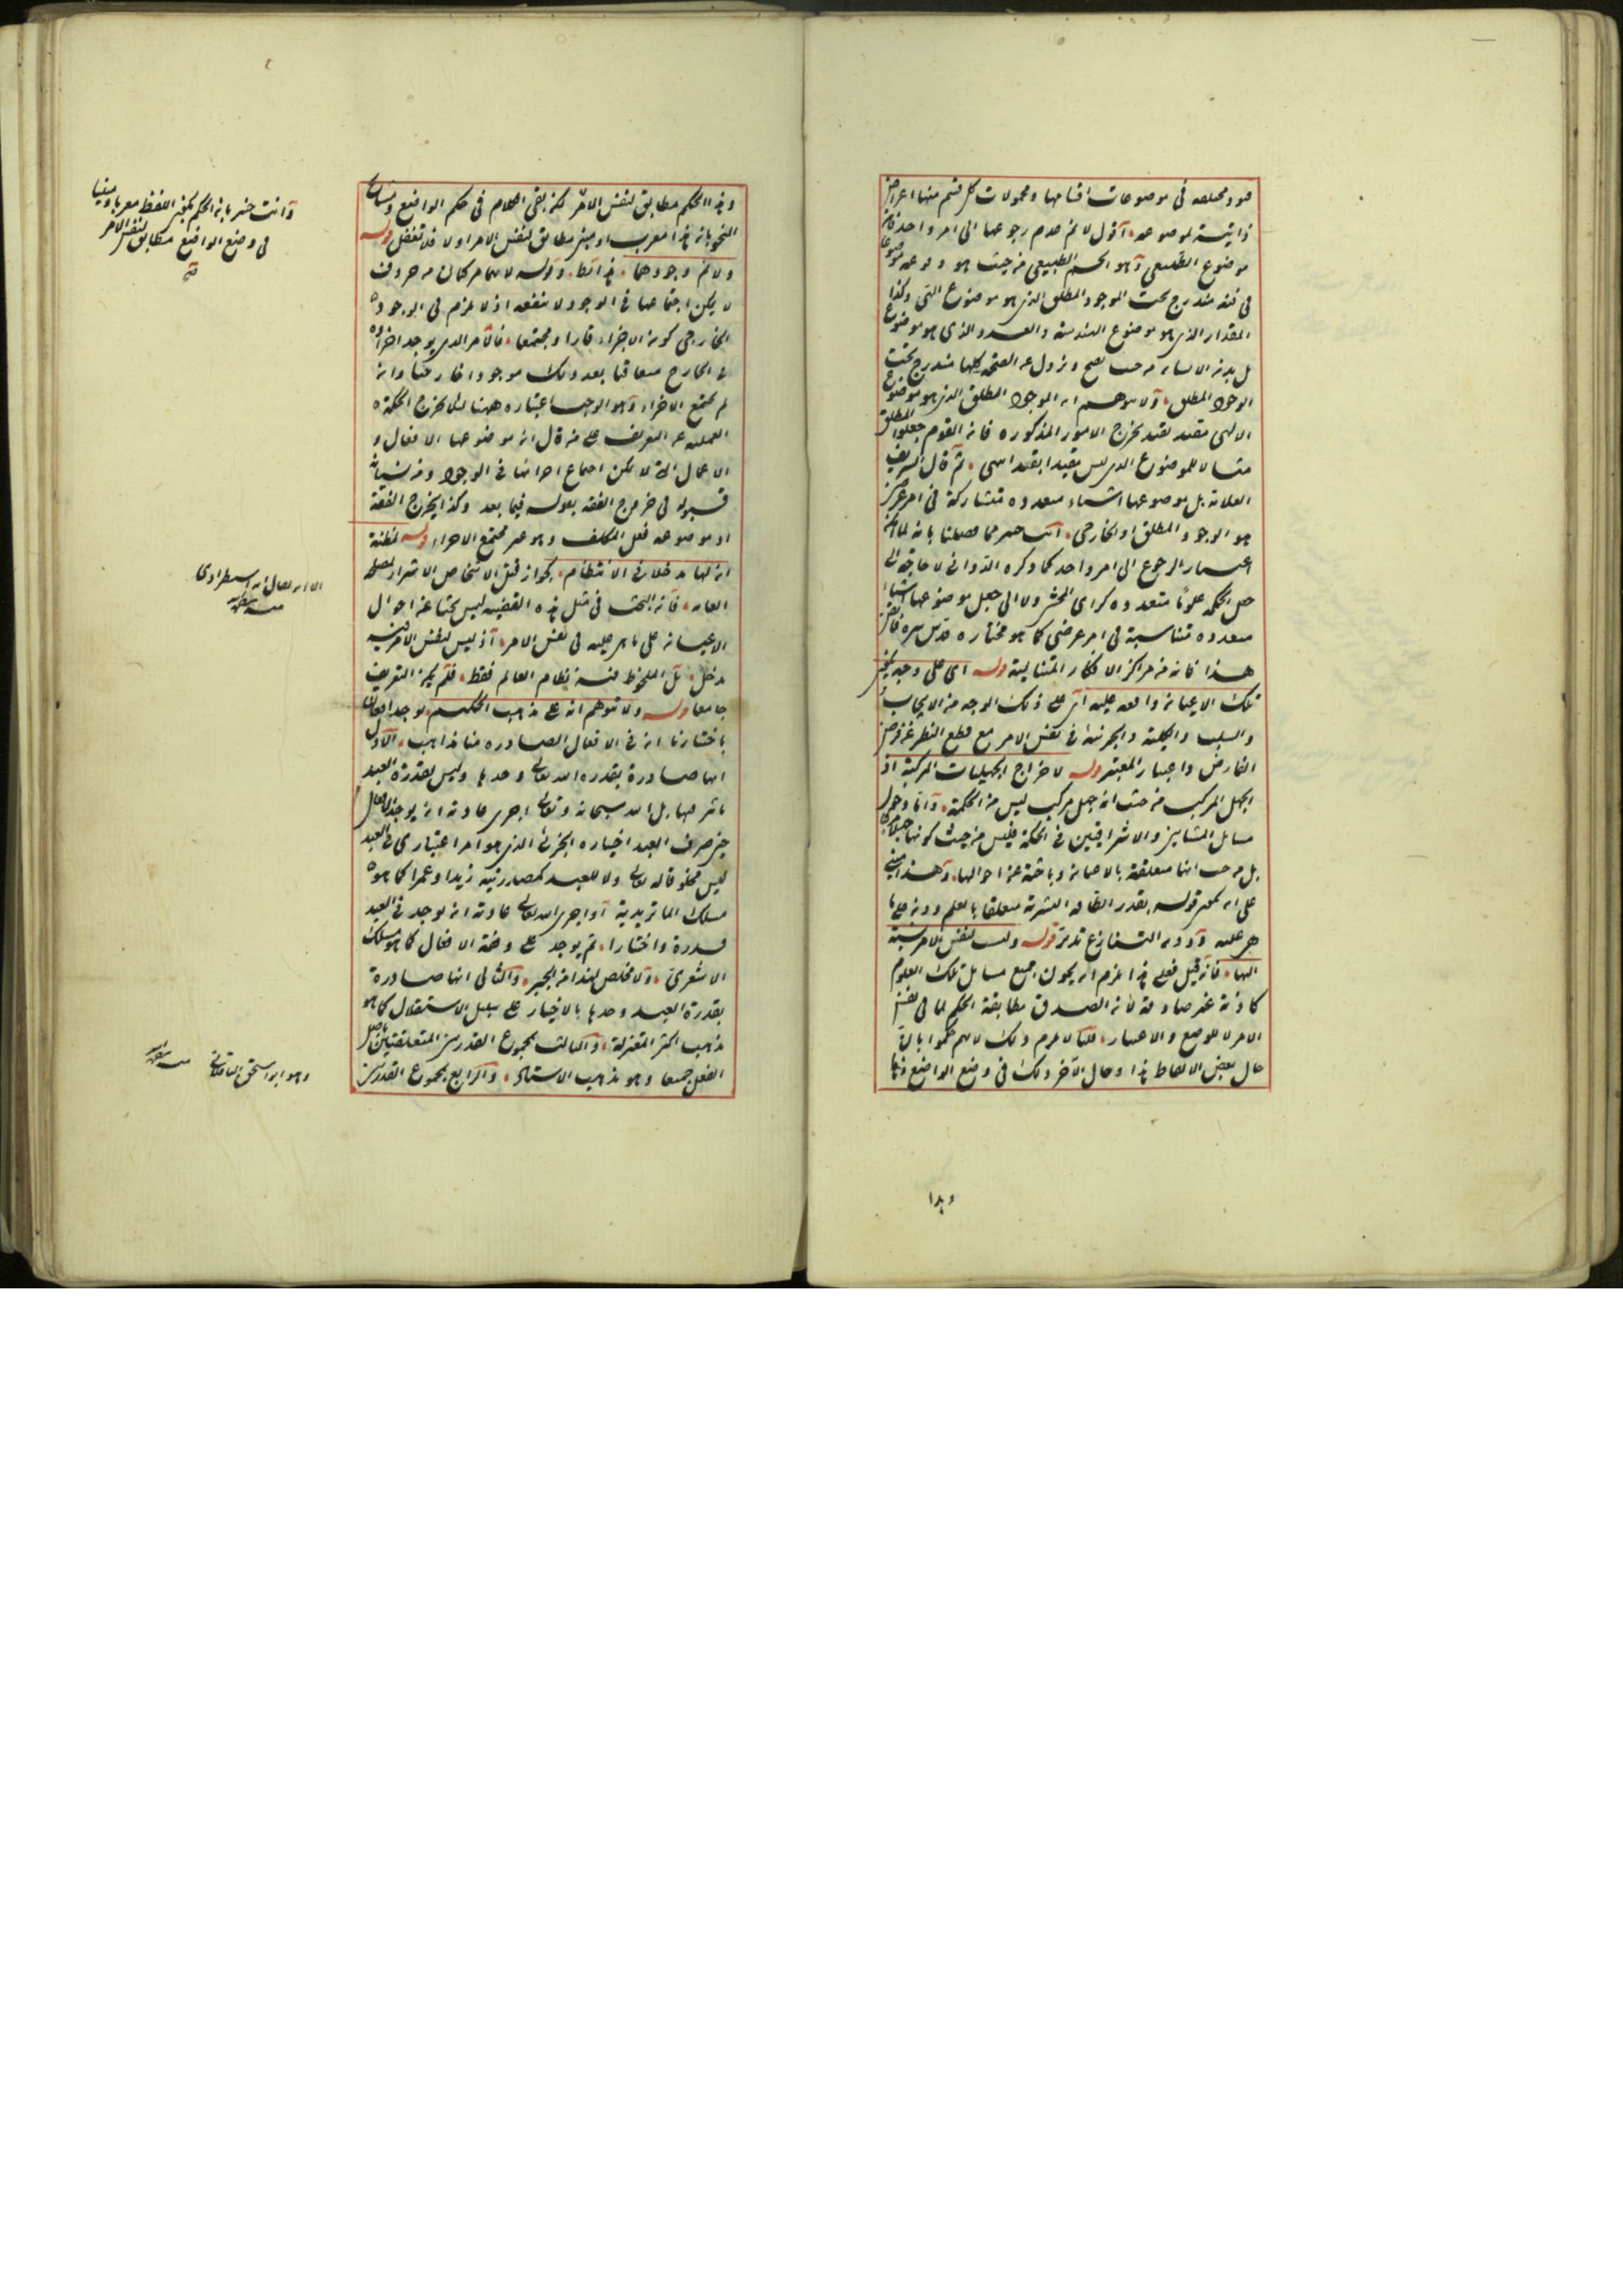 موضوعات اقسامها ومحمولات كل قسم منها اعراض
ذاتية لموضوعه اقول لا ثم عدم رجوعها الى امر واحد فان
موضوع الطبيعى وهو الجسم الطبيعى من حيث هو
مندرج تحت الموجود المطلق الذى هو موضوع وكذا
المقدار الذى هو موضوع الهندسة والعدد الذى هو موضوع
بل بدن الانسان من حيث يصح ويزول عن الصحة كلها مندرج تحت
الوجود المطلق ولا يتوهم ان الموجود المطلق الذى هو موضوع
الالهى مقيد بقيد يخرج الامور المذكورة فان القوم جعلوا المطلق
مثالا للموضوع الذى ليس مقيدا بقيد انتهى ثم قال الشريف
العلامة بل موضوعها اشياء متعددة متشاركة فى امر عرضى
هو الوجود المطلق او الخارجى انت خبير مما فصلنا بانه
اعتبار الرجوع الى امر واحد كما ذكره الدوانى لا حاجة الى
جعل الحكمة علوما متعددة كراى المحشى ولا الى جعل موضوعها اشياء
متعددة متناسبة فى امر عرضى كما هو مختاره قدس سره
هذا فانه من مراكز الافكار المتتالية قوله اى على وجه
تلك الاعيان واقعة عليه اى على ذلك الوجه من الايجاب
والسلب والكلية والجزئية فى نفس الامر مع قطع النظر عن فرض
الفارض واعتبار المعتبر قوله لاخراج الجهليات المركبة اذ
الجهل المركب من حيث انه جهل مركب ليس من الحكمة واما دخول
مسائل المشائين والاشراقيين فى الحكمة فليس من حيث كونها
بل من حيث انها متعلقة بالاعيان وباحثة عن احوالها وهذا مبنى
على ان يكون قوله بقدر الطاقة البشرية متعلقا بالعلم دون على ما
هى عليه او دون التنازع تدبر قوله وليست لنفس الامر نسبة
اليها فان قيل فعلى هذا يلزم ان يكون جميع مسائل تلك العلوم
كاذبة غير صادقة لان الصدق مطابقة الحكم لما فى نفس
الامر لا للوضع والاعتبار قلنا لا يلزم ذلك لانهم حكموا بان
حال بعض الالفاظ هذا وحال الآخر ذلك فى وضع الواضع
وهذا
وهذا الحكم مطابق لنفس الامر لكن بقى الكلام فى حكم الواضع
النحو بان هذا معرب او مبنى مطابق لنفس الامر او لا فلا تغفل قوله
ولا ثم وجودهما وقوله لانهما مركبان من حروف
لا يمكن اجتماعها فى الوجود لا ينفعه اذ لا يلزم فى الوجود
الخارجى كون الاجزاء قارا ومجتمعا فالامر الذى يوجد اجزاؤه
فى الخارج متعاقبا يعد ذلك موجودا خارجيا وان
لم يجتمع الاجزاء وهو الواجب اعتباره ههنا لئلا يخرج الحكمة
العملية عن التعريف على من قال ان موضوعها الافعال و
الاعمال التى لا يمكن اجتماع اجزائها فى الوجود
قبوله فى خروج الفقه بقوله فيما بعد وكذا يخرج الفقه
اذ موضوعه فعل المكلف وهو غير مجتمع الاجزاء قوله لمظنة
ان لها مدخلا فى الانتظام كجواز قتل الاشخاص الاشرار لمصلحة
العامة فان البحث فى مثل هذه القضية ليس بحثا عن احوال
الاعيان على ما هى عليه فى نفس الامر اذ ليس لنفس الامر فيه
مدخل بل الملحوظ فيه نظام العالم فقط فلم يكن التعريف
جامعا قوله ولا تتوهم انه على مذهب الحكيم يوجد افعالنا
باختيارنا ان فى الافعال الصادرة منا مذاهب الاول
انها صادرة بقدرة الله تعالى وحدها وليس لقدرة العبد
تاثير فيها بل الله سبحانه وتعالى اجرى عادته ان يوجد الافعال
حين صرف العبد اختياره الجزئى الذى هو امر اعتبارى فى العبد
ليس مخلوقا له تعالى ولا للعبد كمصادرتية زيدا وعمرا كما هو
مسلك الماتريدية او اجرى الله تعالى عادته ان يوجد فى العبد
قدرة واختيارا ثم يوجد على وفقه الافعال كما هو مسلك
الاشعرى ولا مخلص لهذا من الجبر والثانى انها صادرة
بقدرة العبد وحدها بالاختيار على سبيل الاستقلال كما هو
مذهب اكثر المعتزلة والثالث بمجموع القدرتين المتعلقتين باصل
الفعل جميعا وهو مذهب الاستاذ والرابع بمجموع القدرتين
وانت خبير بان الحكم بكون اللفظ معربا ومبنيا
فى وضع الواضع مطابق لنفس الامر
الا ان يقال انه استطرادى
منه
وهو ابو اسحق
منه